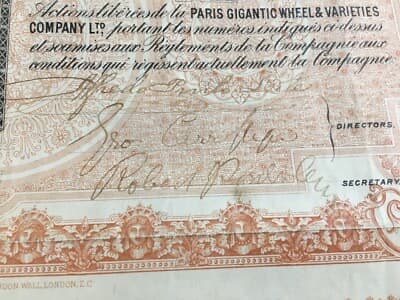 Actions libérées de la PARIS GIGANTIC WHEEL & VARIETIES
COMPANY LTD, portant les numéros indiqués ci-dessus
et soumises aux Règlements de la Compagnie aux
conditions qui régissent actuellement la Compagnie
Alfredo
DIRECTORS.
Geo
Robert
SECRETARY.
DON WALL, LONDON, E.C